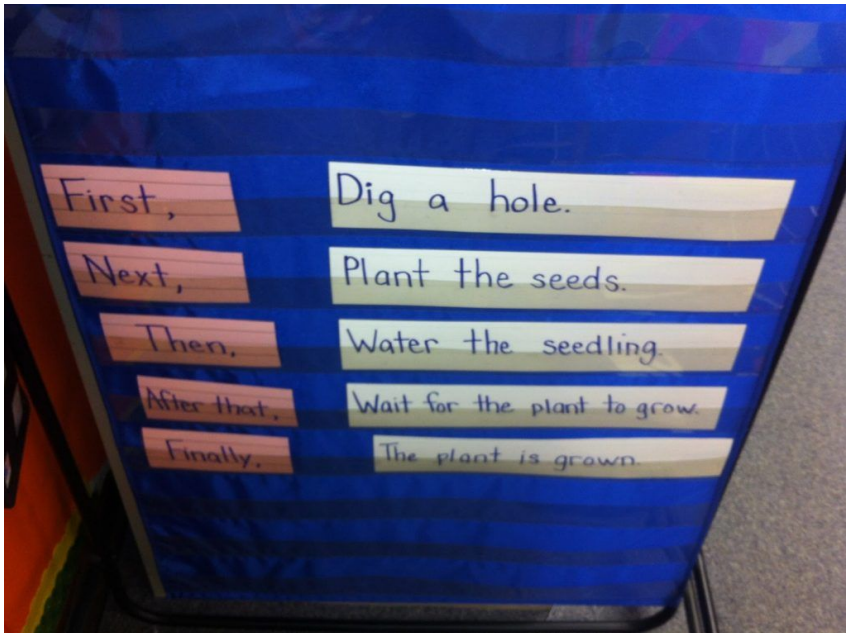 First, Dig a hole.
Next, Plant the seeds.
Then, Water the seedling.
After that, Wait for the plant to grow.
Finally, The plant is grown.